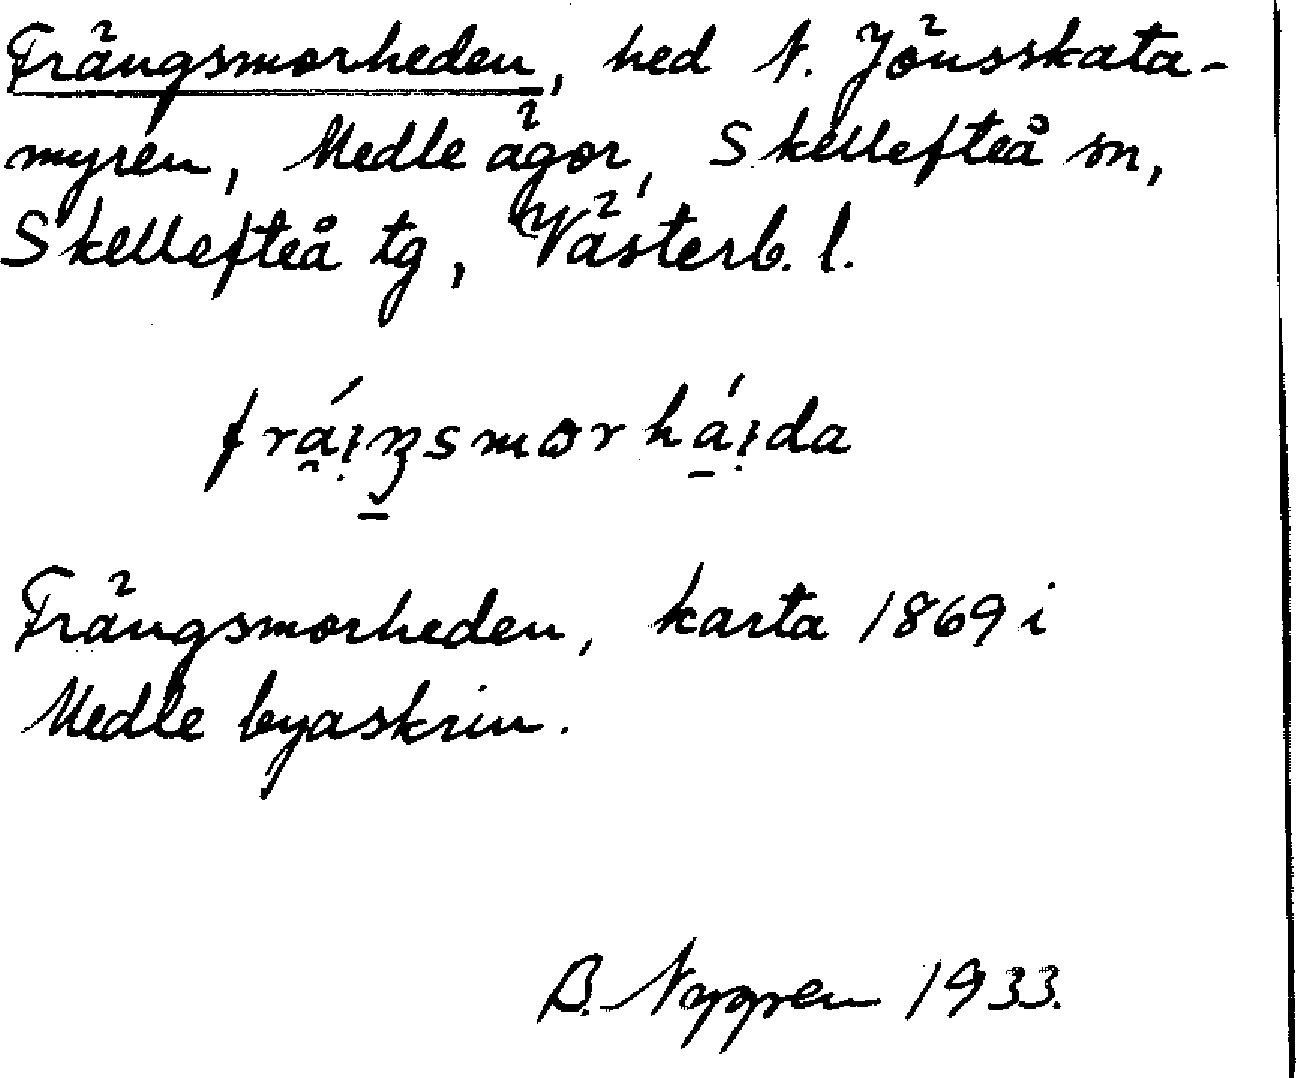 Frängsmorheden, hed N. Jönsskata-
myren, Medle ägor, Skellefteå sn,
Skellefteå tg, Västerb. l.
Frängsmorheden, karta 1869 i
Medle byaskrin.
B. Nygren 1933.